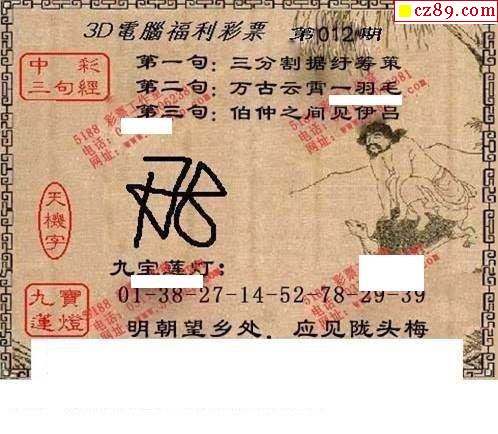 cz89.com
3D電腦福利彩票 第012期
中彩
三句經
第一句：三分割据纡筹策
第二句：万古云霄一羽毛
第三句：伯仲之间见伊吕
天機字
九宝莲灯：
九寶
蓮燈
01-38-27-14-52-78-29-39
明朝望乡处，应见陇头梅